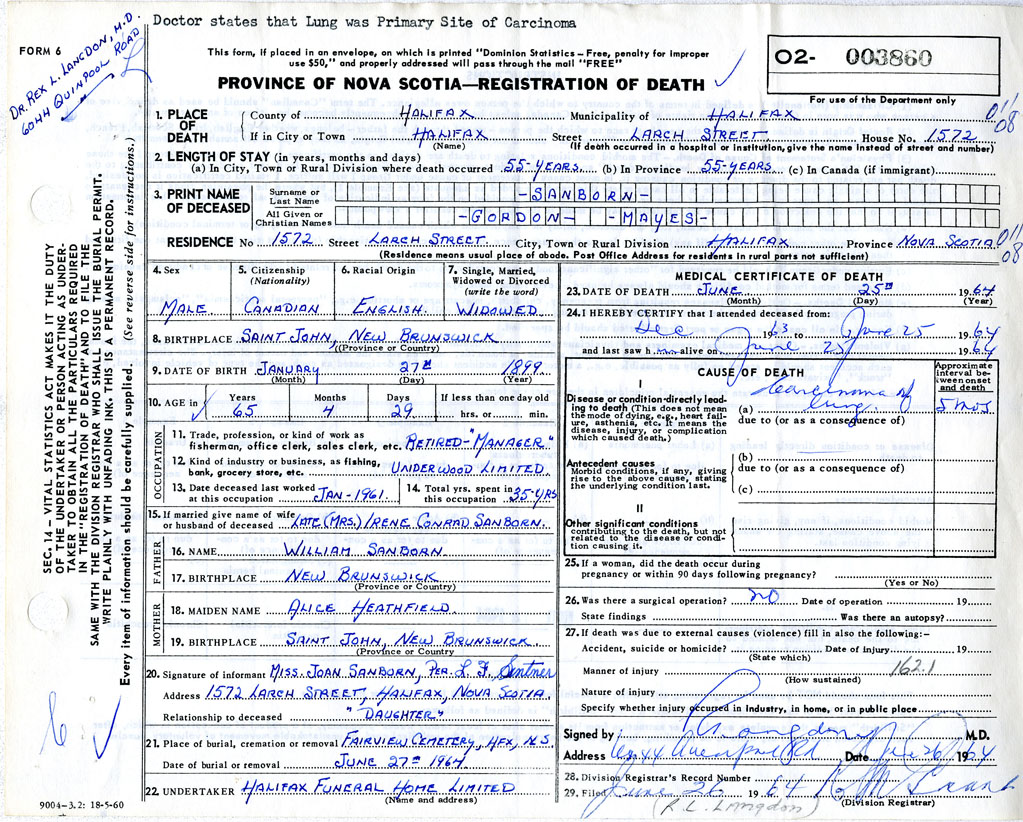 Doctor states that Lung was Primary Site of Carcinoma
FORM 6
DR. REX L. LANGDON, M.D.
6044 QUINPOOL ROAD
This form, if placed in an envelope, on which is printed "Dominion Statistics – Free, penalty for improper
use $50," and properly addressed will pass through the mail "FREE"
PROVINCE OF NOVA SCOTIA—REGISTRATION OF DEATH
O2- 003860
For use of the Department only
1. PLACE OF DEATH
County of HALIFAX Municipality of HALIFAX
If in City or Town HALIFAX Street LARCH STREET House No. 1572
(Name) (If death occurred in a hospital or institution, give the name instead of street and number)
011
08
2. LENGTH OF STAY (in years, months and days)
(a) In City, Town or Rural Division where death occurred 55-YEARS. (b) In Province 55-YEARS (c) In Canada (if immigrant)
3. PRINT NAME OF DECEASED
Surname or Last Name -SANBORN-
All Given or Christian Names -GORDON- -MAYES-
RESIDENCE No 1572 Street LARCH STREET. City, Town or Rural Division HALIFAX Province NOVA SCOTIA
(Residence means usual place of abode. Post Office Address for residents in rural parts not sufficient)
011
08
4. Sex
MALE
5. Citizenship (Nationality)
CANADIAN
6. Racial Origin
ENGLISH.
7. Single, Married, Widowed or Divorced (write the word)
WIDOWED
8. BIRTHPLACE SAINT JOHN, NEW BRUNSWICK
(Province or Country)
9. DATE OF BIRTH JANUARY 27TH 1899.
(Month) (Day) (Year)
10. AGE in Years Months Days If less than one day old
65 4 29 hrs. or min.
OCCUPATION
11. Trade, profession, or kind of work as
fisherman, office clerk, sales clerk, etc. RETIRED-"MANAGER"
12. Kind of industry or business, as fishing,
bank, grocery store, etc. UNDERWOOD LIMITED.
13. Date deceased last worked
at this occupation JAN-1961.
14. Total yrs. spent in
this occupation 35-YRS
15. If married give name of wife
or husband of deceased LATE (MRS.) IRENE CONRAD SANBORN.
FATHER
16. NAME WILLIAM SANBORN.
17. BIRTHPLACE NEW BRUNSWICK
(Province or Country)
MOTHER
18. MAIDEN NAME ALICE HEATHFIELD
19. BIRTHPLACE SAINT JOHN, NEW BRUNSWICK.
(Province or Country)
20. Signature of informant MISS. JOAN SANBORN, PER.
Address 1572 LARCH STREET, HALIFAX, NOVA SCOTIA.
Relationship to deceased "DAUGHTER"
21. Place of burial, cremation or removal FAIRVIEW CEMETERY, HFX, N.S.
Date of burial or removal JUNE 27TH 1964
22. UNDERTAKER HALIFAX FUNERAL HOME LIMITED
(Name and address)
MEDICAL CERTIFICATE OF DEATH
23. DATE OF DEATH JUNE 25TH 1964
(Month) (Day) (Year)
24. I HEREBY CERTIFY that I attended deceased from:
Dec 1963 to June 25 1964
and last saw h im alive on June 25 1964
CAUSE OF DEATH
Approximate interval between onset and death
I
Disease or condition directly leading to death (This does not mean the mode of dying, e.g., heart failure, asthenia, etc. It means the disease, injury, or complication which caused death.)
(a) carcinoma of lung. 5 mos.
due to (or as a consequence of)
Antecedent causes
Morbid conditions, if any, giving rise to the above cause, stating the underlying condition last.
(b)
due to (or as a consequence of)
(c)
II
Other significant conditions
contributing to the death, but not related to the disease or condition causing it.
25. If a woman, did the death occur during
pregnancy or within 90 days following pregnancy?
(Yes or No)
26. Was there a surgical operation? no Date of operation 19
State findings Was there an autopsy?
27. If death was due to external causes (violence) fill in also the following:–
Accident, suicide or homicide? Date of injury 19
(State which)
Manner of injury 162.1
(How sustained)
Nature of injury
Specify whether injury occurred in Industry, in home, or in public place
Signed by M.D.
Address 6044 Quinpool Rd Date June 26 1964
28. Division Registrar's Record Number
29. Filed June 26 1964
(Division Registrar)
(R.L. Langdon)
SEC. 14 – VITAL STATISTICS ACT MAKES IT THE DUTY
OF THE UNDERTAKER OR PERSON ACTING AS UNDER-
TAKER TO OBTAIN ALL THE PARTICULARS REQUIRED
IN THE "REGISTRATION OF DEATH" AND TO FILE THE
SAME WITH THE DIVISION REGISTRAR WHO SHALL ISSUE THE BURIAL PERMIT.
WRITE PLAINLY WITH UNFADING INK. THIS IS A PERMANENT RECORD.
Every item of information should be carefully supplied. (See reverse side for instructions.)
9004-3.2: 18-5-60